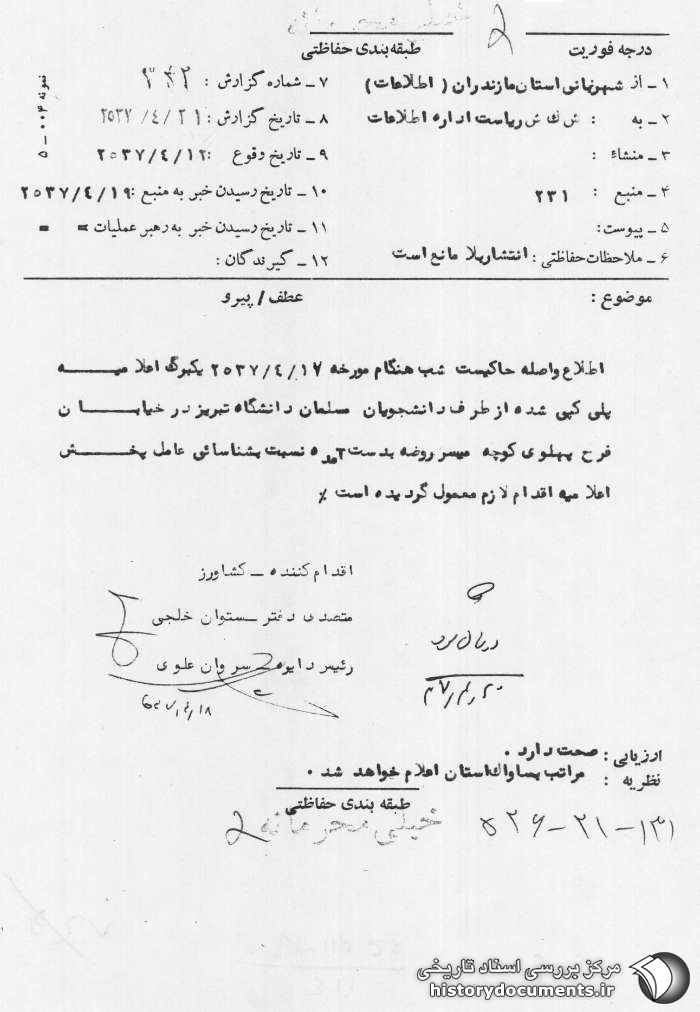 درجه فوریت
طبقه‌بندی حفاظتی
نمونه ۰۰۳ – ۵
۱ – از شهربانی استان مازندران ( اطلاعات )
۲ – به : ش ك ش ریاست اداره اطلاعات
۳ – منشاء :
۴ – منبع : ۲۳۱
۵ – پیوست:
۶ – ملاحظات حفاظتی : انتشار بلا مانع است
۷ – شماره گزارش :
۸ – تاریخ گزارش : ۲۵۳۷/۴/۲۱
۹ – تاریخ وقوع : ۲۵۳۷/۴/۱۲
۱۰ – تاریخ رسیدن خبر به منبع : ۲۵۳۷/۴/۱۹
۱۱ – تاریخ رسیدن خبر به رهبر عملیات = =
۱۲ – گیرندگان :
موضوع :
عطف / پیرو
اطلاع واصله حاکیست شب هنگام مورخه ۲۵۳۷/۴/۱۷ یکبرگ اعلامیه
پلی کپی شده از طرف دانشجویان مسلمان دانشگاه تبریز در خیابان
فرح پهلوی کوچه میسر روضه بدست آمده نسبت بشناسائی عامل پخش
اعلامیه اقدام لازم معمول گردیده است ٪
اقدام کننده – کشاورز
متصدی دفتر – ستوان خلجی
رئیس دایره – سروان علوی
ارزیابی : صحت دارد .
نظریه : مراتب بساواك استان اعلام خواهد شد .
طبقه بندی حفاظتی
خیلی محرمانه
۱۳۱–۲۱–۵۲۶
مرکز بررسی اسناد تاریخی
historydocuments.ir